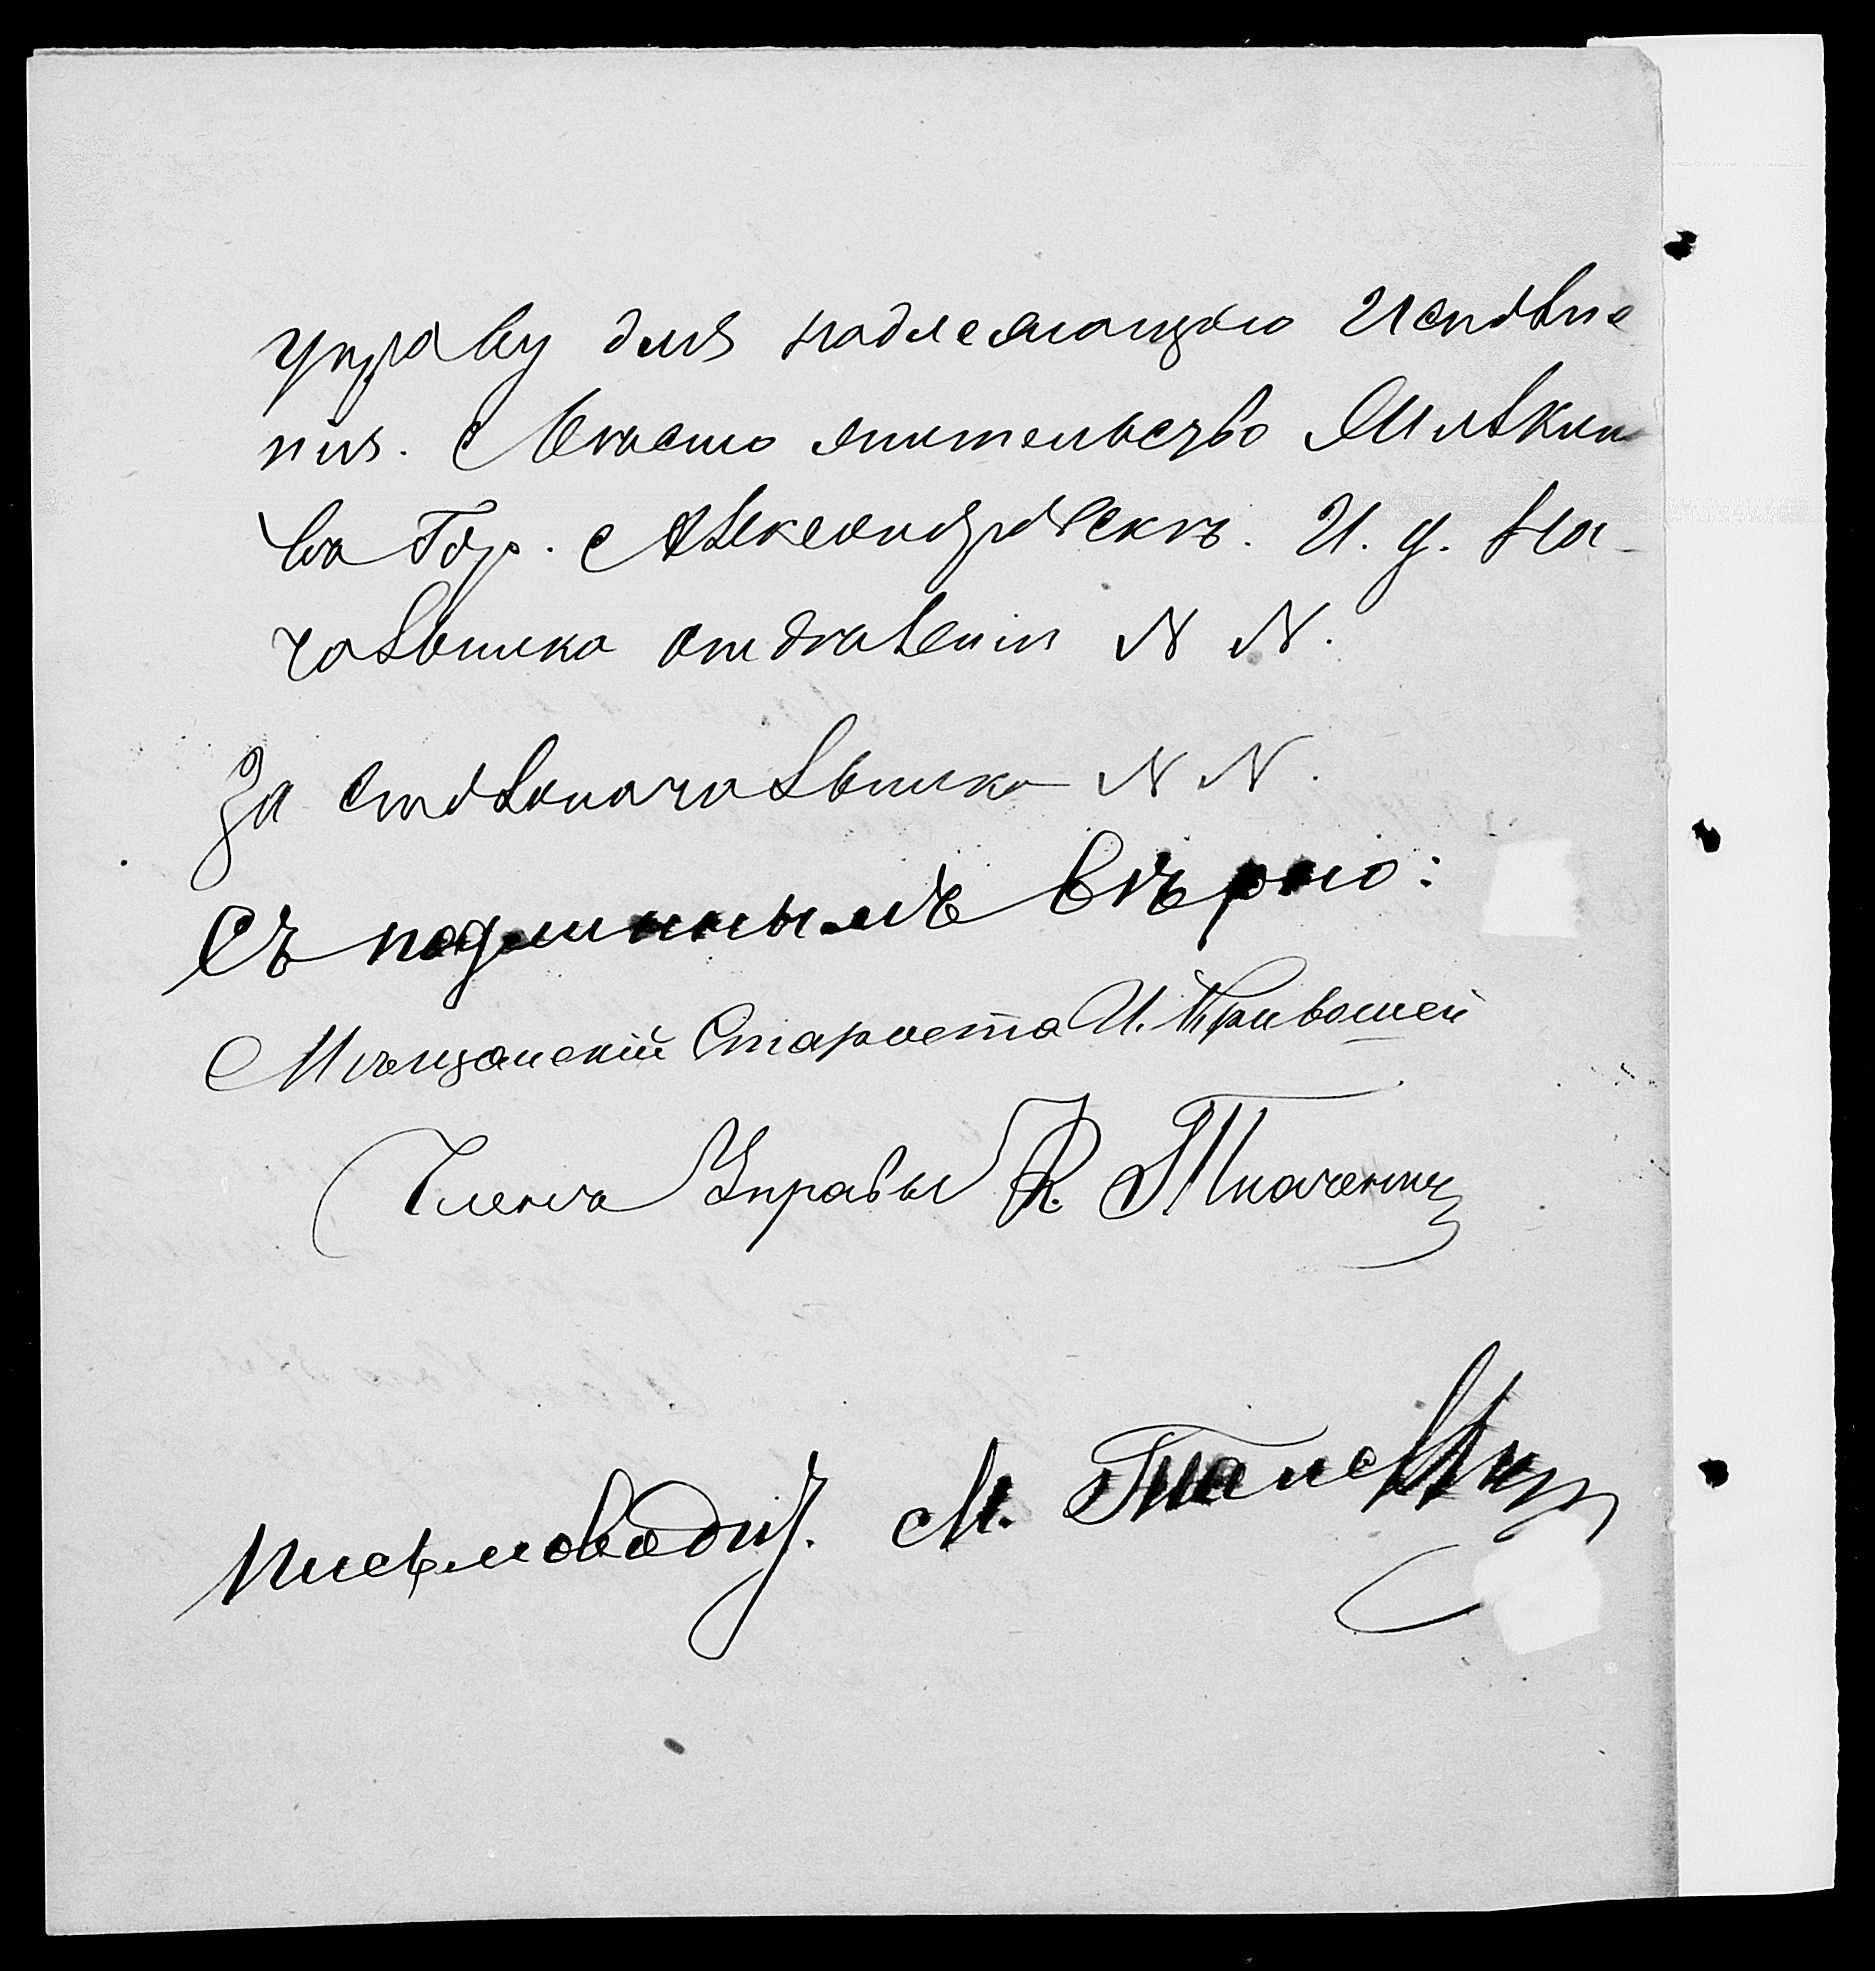 управу для надлежащаго Исполне
нія. Мѣсто жительство Милкин
въ Гор. Александровскѣ. И. д. На-
чальника отдѣленія N N.
За столоначальника N N.
Съ подлиннымъ вѣрно:
Мѣщанскій Староста И. Кривошей
Членъ Управы К. Ткаченко
Письмоводит. М.